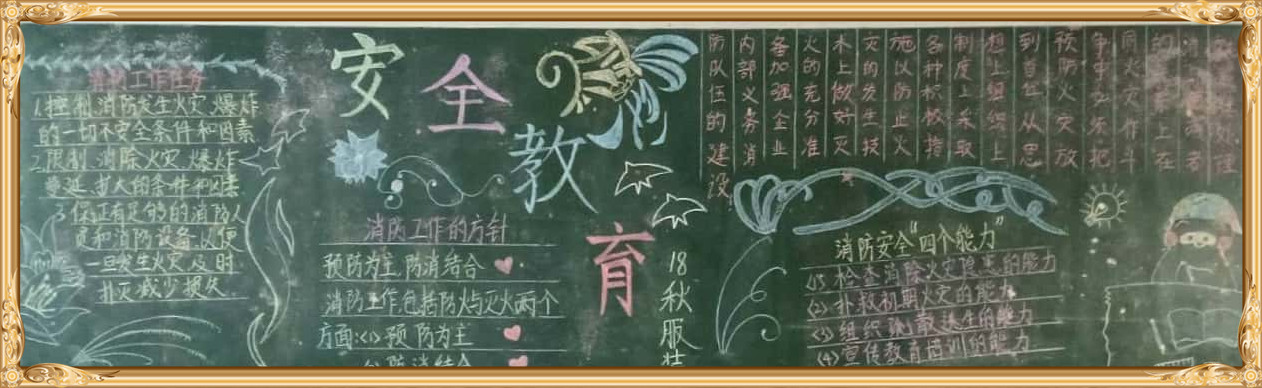 安全教育
消防工作任务
1.控制、消防发生火灾、爆炸
的一切不安全条件和因素
2.限制、消除火灾、爆炸
蔓延、扩大的条件和因素
3.保证有足够的消防人
员和消防设备,以便
一旦发生火灾,及时
扑灭,减少损失
消防工作的方针
预防为主,防消结合
消防工作包括防火与灭火两个
方面:<1>预防为主
防消结合
18秋服装
预防火灾放
到首位,从思
想上组织上
制度上采取
各种积极措
施以防止火
灾的发生技
术上做好灭
火的充分准
备加强企业
内部义务消
防队伍的建设
消防安全“四个能力”
(1)检查消除火灾隐患的能力
(2)扑救初期火灾的能力
(3)组织疏散逃生的能力
(4)宣传教育培训的能力